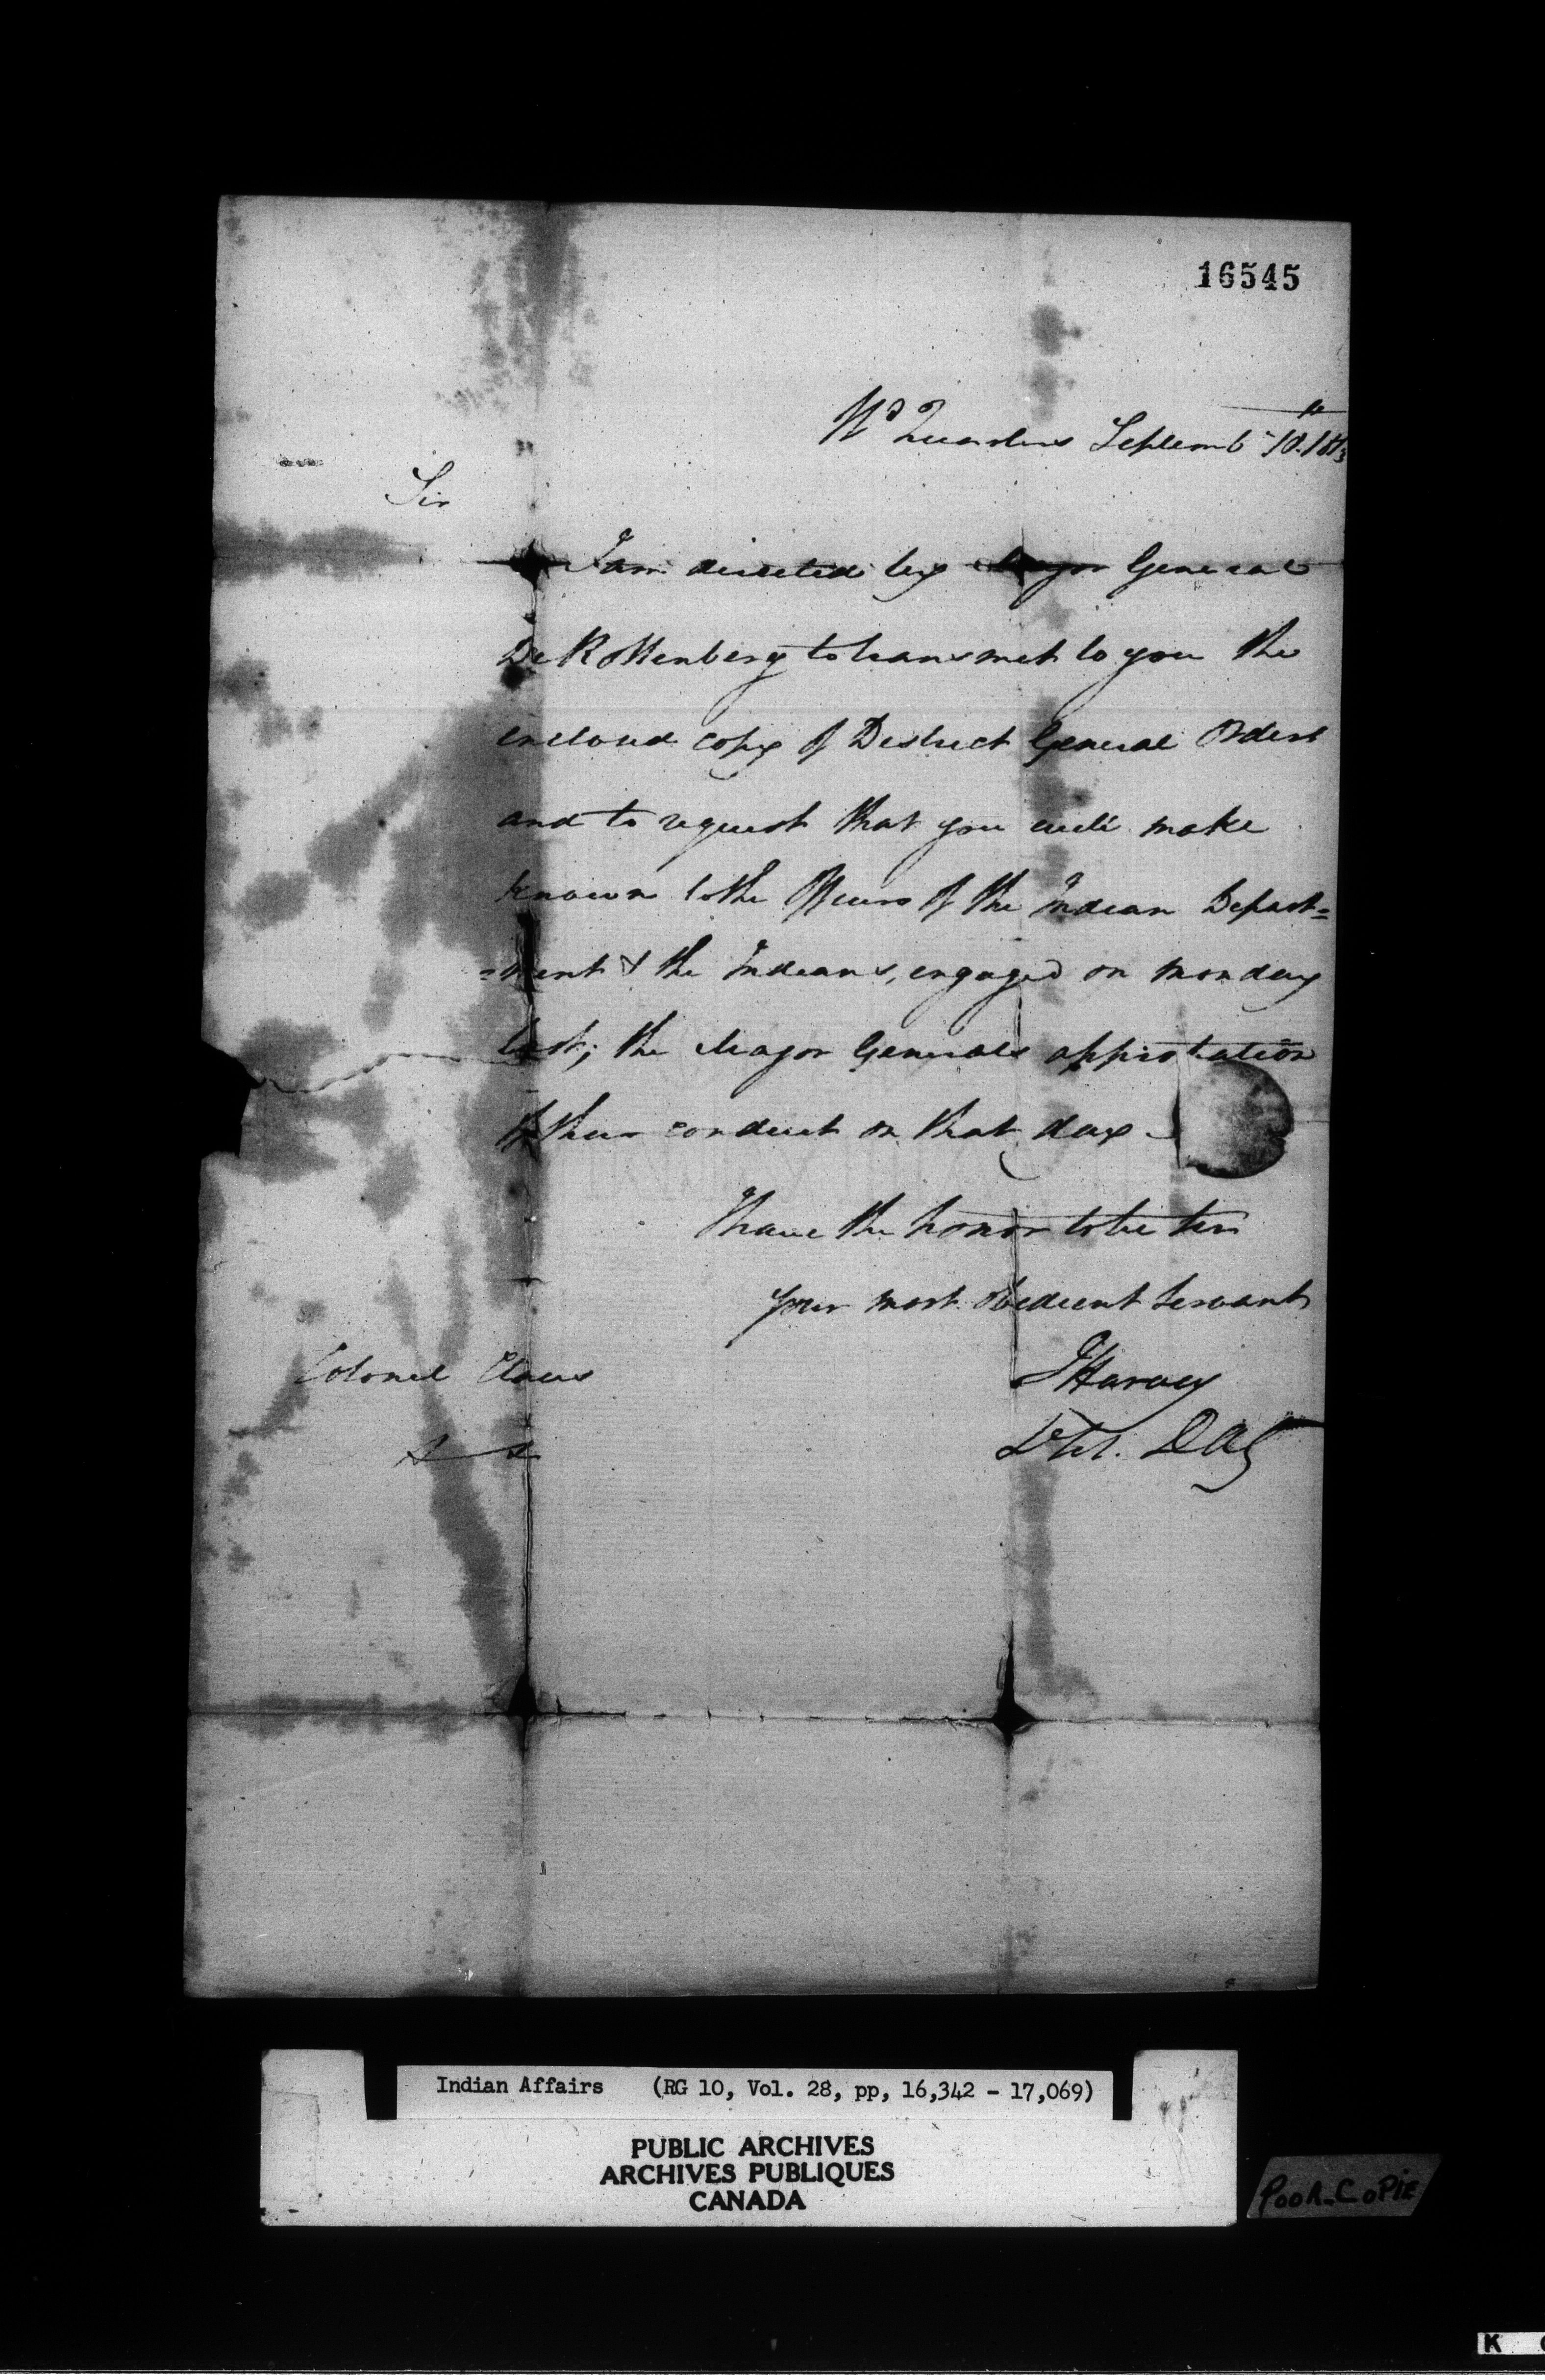 16545
Hd Quarters Septemb 10th 1813
Sir
I am directed by Major General
De Rottenberg to transmit to you the
enclosed copy of District General Orders
and to request that you will make
known to the Officers of the Indian Depart=
=ment & the Indians, engaged on Monday
last; the Major Generals approbation
of their conduct on that day
I have the honor to be Sir
Your most obedient Servant
Colonel Claus
J Harvey
Lt Col. DAG
Indian Affairs (RG 10, Vol. 28, pp, 16,342 - 17,069)
PUBLIC ARCHIVES
ARCHIVES PUBLIQUES
CANADA
POOR COPIE
K